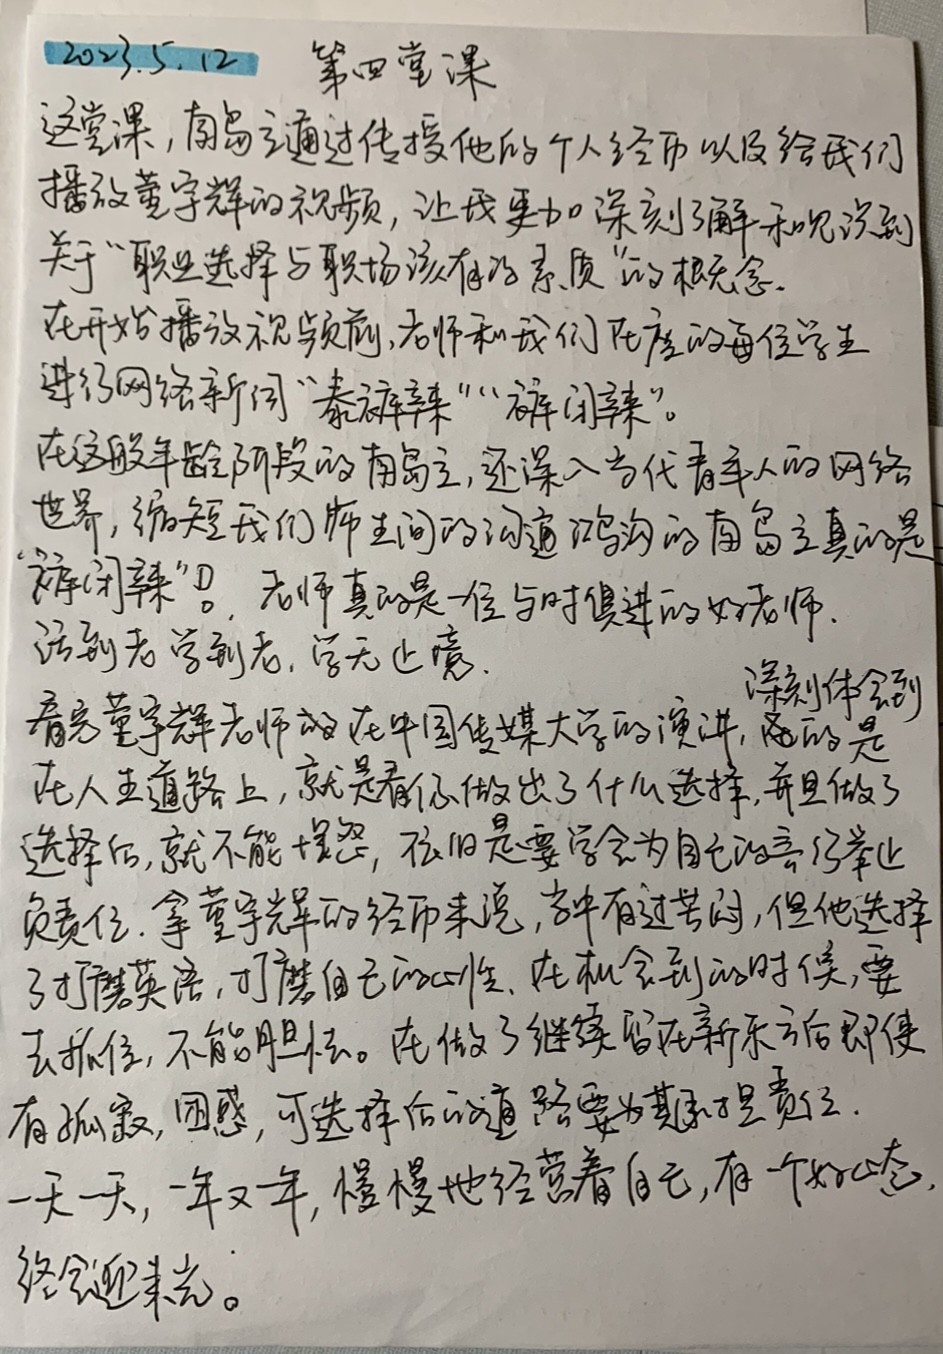 2023.5.12 第四堂课
这堂课，南岛主通过传授他的个人经历以及给我们
播放董宇辉的视频，让我更加深刻了解和认识到
关于“职业选择与职场该有的素质”的概念.
在开始播放视频前，老师和我们在座的每位学生
进行网络新闻“泰裤辣”“裤闭辣”。
在这般年龄阶段的南岛主，还深入当代青年人的网络
世界，缩短我们师生间的沟通鸿沟的南岛主真的是
“裤闭辣”！。老师真的是一位与时俱进的好老师.
活到老学到老，学无止境.
深刻体会到
看完董宇辉老师的在中国传媒大学的演讲，的是
在人生道路上，就是看你做出了什么选择，并且做了
选择后，就不能埋怨，依旧是要学会为自己的言行举止
负责任. 拿董宇辉的经历来说，家中有过苦闷，但他选择
了打磨英语，打磨自己的心性、在机会到的时候，要
去抓住，不能胆怯。在做了继续留在新东方后即使
有孤寂，困惑，可选择后的道路要为其承担责任.
一天一天，一年又一年，慢慢地经营着自己，有一个好心态，
终会迎来光。